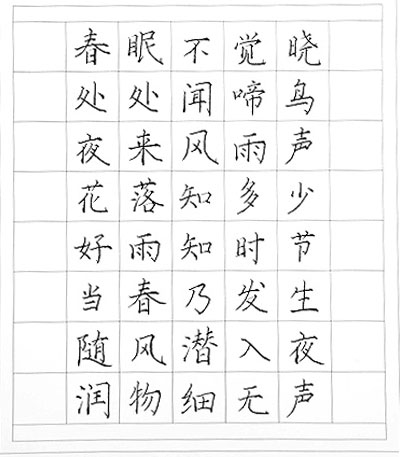 春眠不觉晓
处处闻啼鸟
夜来风雨声
花落知多少
好雨知时节
当春乃发生
随风潜入夜
润物细无声